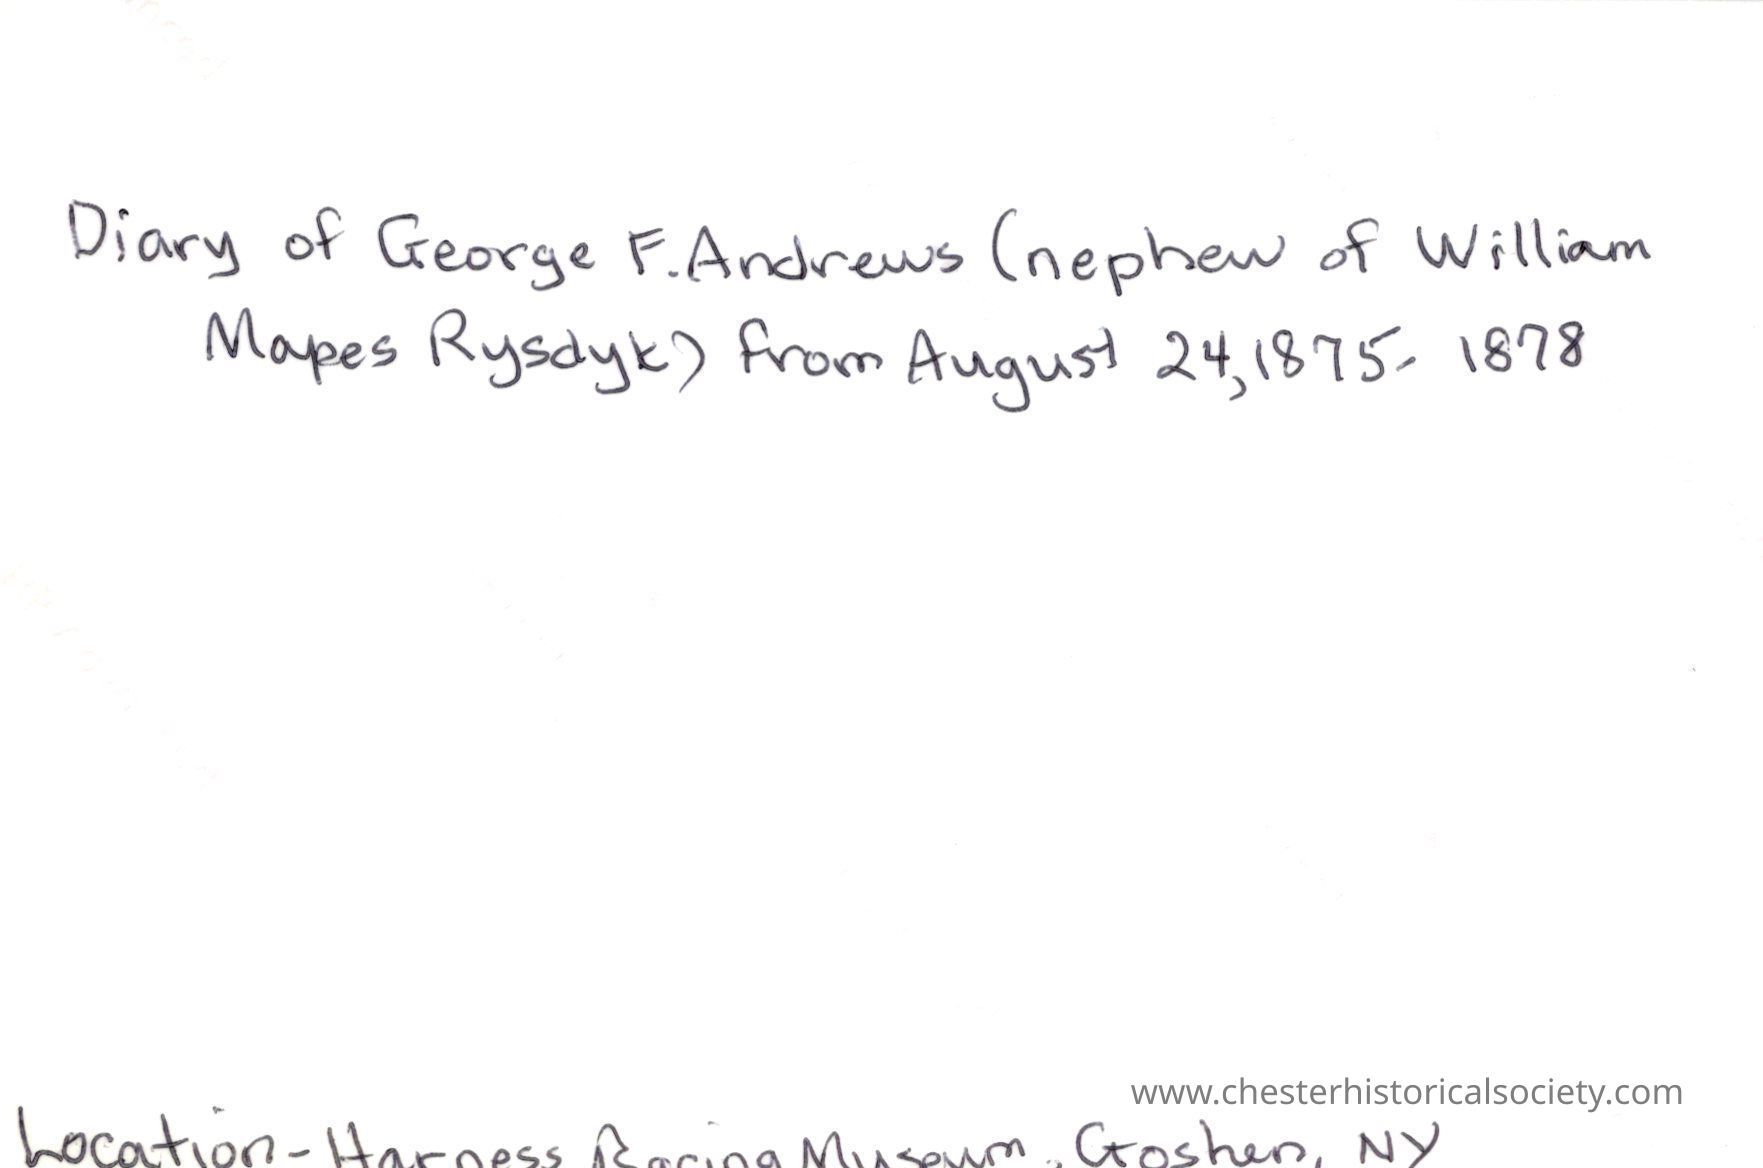 Diary of George F. Andrews (nephew of William
Mapes Rysdyk) from August 24, 1875- 1878
www.chesterhistoricalsociety.com
Location - Harness Racing Museum, Goshen, NY